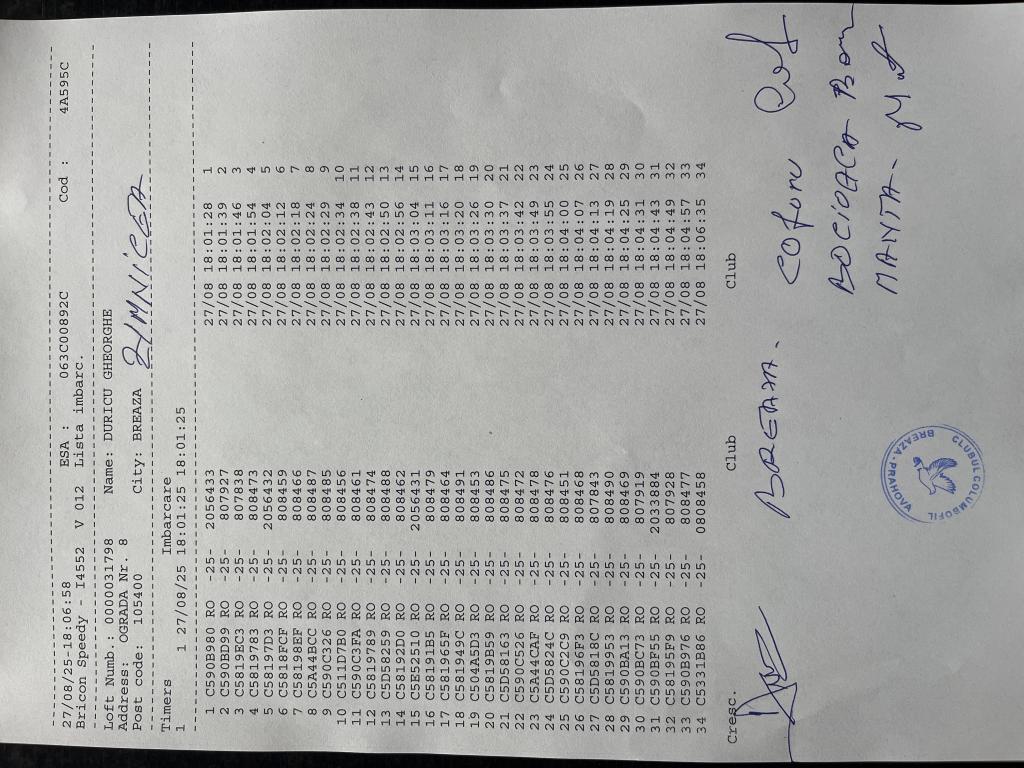 27/08/25-18:06:58 ESA : 063C00892C Cod : 4A595C
Bricon Speedy - I4552 V 012 Lista imbarc.
Loft Numb. : 0000031798 Name: DURICU GHEORGHE
Address: OGRADA Nr. 8
Post code: 105400 City: BREAZA ZIMNICEA
Timers Imbarcare
1 1 27/08/25 18:01:25 18:01:25
1 C590B980 RO -25- 2056433 27/08 18:01:28 1
2 C590BD99 RO -25- 807927 27/08 18:01:39 2
3 C5819EC3 RO -25- 807838 27/08 18:01:46 3
4 C5819783 RO -25- 808473 27/08 18:01:54 4
5 C58197D3 RO -25- 2056432 27/08 18:02:04 5
6 C5818FCF RO -25- 808459 27/08 18:02:12 6
7 C58198EF RO -25- 808460 27/08 18:02:18 7
8 C5A44BCC RO -25- 808487 27/08 18:02:24 8
9 C590C326 RO -25- 808485 27/08 18:02:29 9
10 C511D7B0 RO -25- 808456 27/08 18:02:34 10
11 C590C3FA RO -25- 808461 27/08 18:02:38 11
12 C5819789 RO -25- 808474 27/08 18:02:43 12
13 C5D58259 RO -25- 808488 27/08 18:02:50 13
14 C58192D0 RO -25- 808462 27/08 18:02:56 14
15 C5E52510 RO -25- 2056431 27/08 18:03:04 15
16 C58191B5 RO -25- 808479 27/08 18:03:11 16
17 C581965F RO -25- 808464 27/08 18:03:16 17
18 C581949C RO -25- 808491 27/08 18:03:20 18
19 C504A5D3 RO -25- 808453 27/08 18:03:26 19
20 C5819B59 RO -25- 808486 27/08 18:03:30 20
21 C5D58163 RO -25- 808475 27/08 18:03:37 21
22 C590C526 RO -25- 808472 27/08 18:03:42 22
23 C5A44CAF RO -25- 808478 27/08 18:03:49 23
24 C5D5824C RO -25- 808476 27/08 18:03:55 24
25 C590C2C9 RO -25- 808451 27/08 18:04:00 25
26 C58196F3 RO -25- 808468 27/08 18:04:07 26
27 C5D5818C RO -25- 807843 27/08 18:04:13 27
28 C5819953 RO -25- 808490 27/08 18:04:19 28
29 C590BA13 RO -25- 808469 27/08 18:04:25 29
30 C590BC73 RO -25- 807919 27/08 18:04:31 30
31 C590BF55 RO -25- 2033884 27/08 18:04:43 31
32 C58195F9 RO -25- 807928 27/08 18:04:49 32
33 C590B976 RO -25- 808477 27/08 18:04:57 33
34 C5331B86 RO -25- 0808458 27/08 18:06:35 34
Cresc. Club Club
BREAZA.
CLUBUL COLUMBOFIL
BREAZA - PRAHOVA